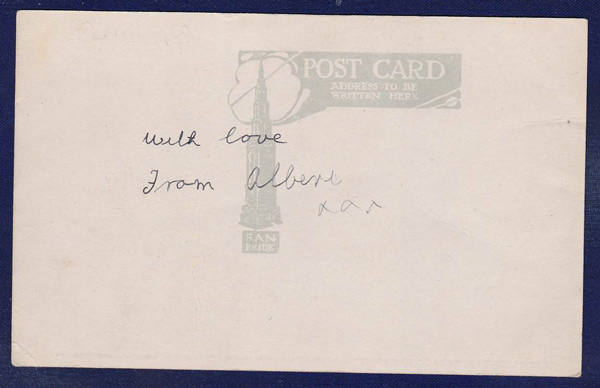 POST CARD
ADDRESS TO BE
WRITTEN HERE
With love
From Albert
xxx
SAN
BRIDE